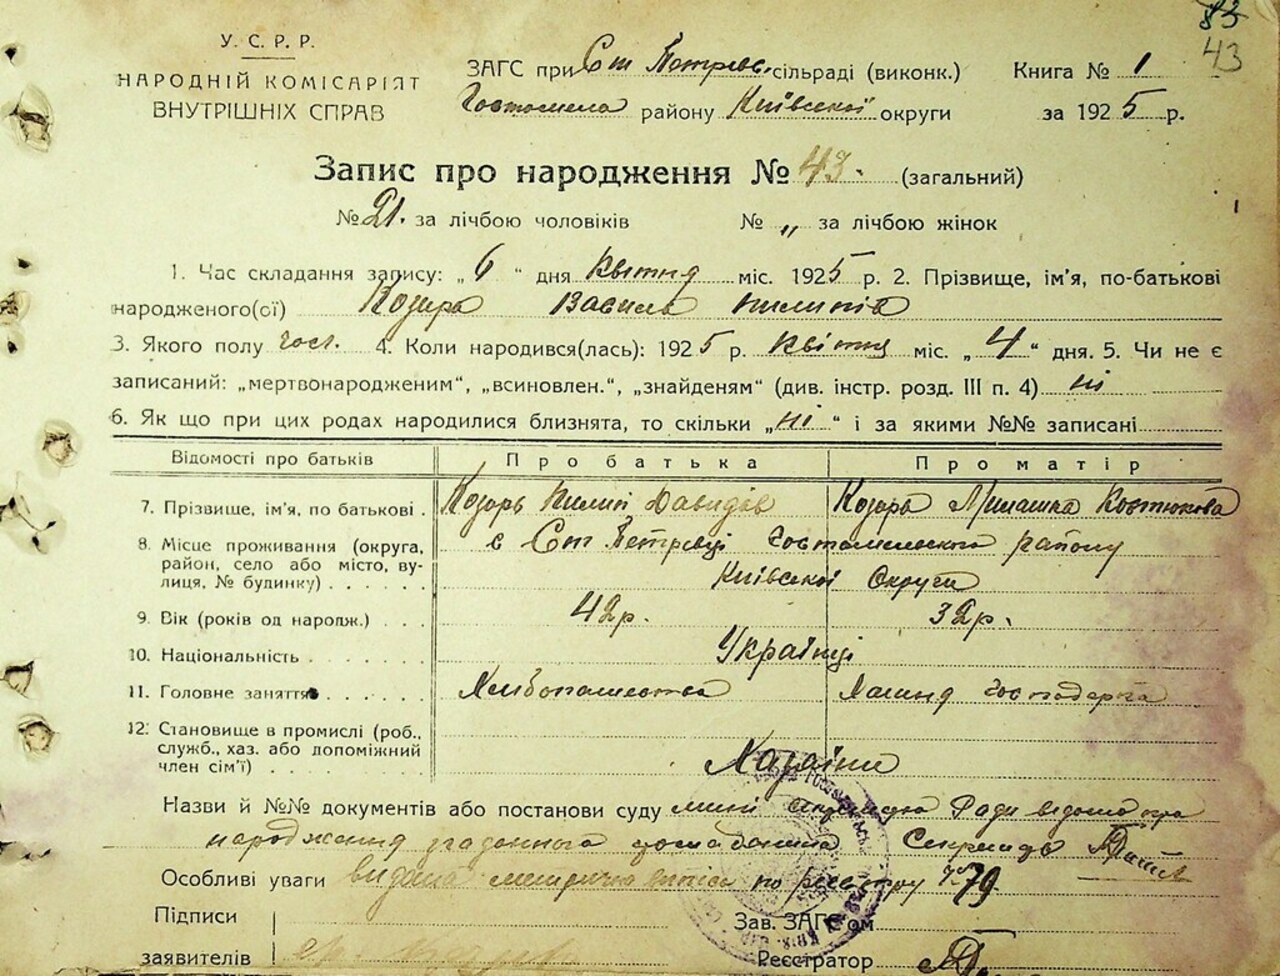 83
43
У. С. Р. Р.
НАРОДНІЙ КОМІСАРІЯТ
ВНУТРІШНІХ СПРАВ
ЗАГС при Ст Петрівс. сільраді (виконк.) Книга № 1
Гостомель району Київської округи за 1925 р.
Запис про народження № 43. (загальний)
№ 21. за лічбою чоловіків № „ за лічбою жінок
1. Час складання запису: „ 6 “ дня квітня міс. 1925 р. 2. Прізвище, ім'я, по-батькові
народженого(ої) Козира Василь Пилипів
3. Якого полу чол. 4. Коли народився(лась): 1925 р. квітня міс. „ 4 “ дня. 5. Чи не є
записаний: „мертвонародженим“, „всиновлен.“, „знайденям“ (див. інстр. розд. III п. 4) ні
6. Як що при цих родах народилися близнята, то скільки „ ні “ і за якими №№ записані
Відомості про батьків Про батька Про матір
7. Прізвище, ім'я, по батькові . Козирь Пилип Давидів Козира Костюкова
8. Місце проживання (округа, с Ст Петрівці Гостомельського району
район, село або місто, ву-
лиця, № будинку) . . . . . Київської Округи
9. Вік (років од народж.) . . . 42р. 32р.
10. Національність . . . . . . Українці
11. Головне заняття . . . . . Хлібопашество Хатнє господарство
12. Становище в промислі (роб.,
служб., хаз. або допоміжний
член сім'ї) . . . . . . . . Хазяїни
Назви й №№ документів або постанови суду мині Ради відомо про
народження Секретарь
Особливі уваги видана метрична випись по реєстру № 79
Підписи Зав. ЗАГС'ом
заявителів Реєстратор